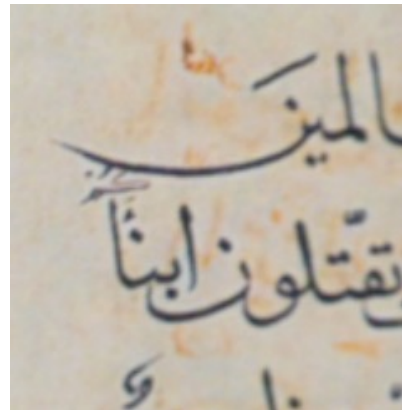 المين
يقتّلون ابنا